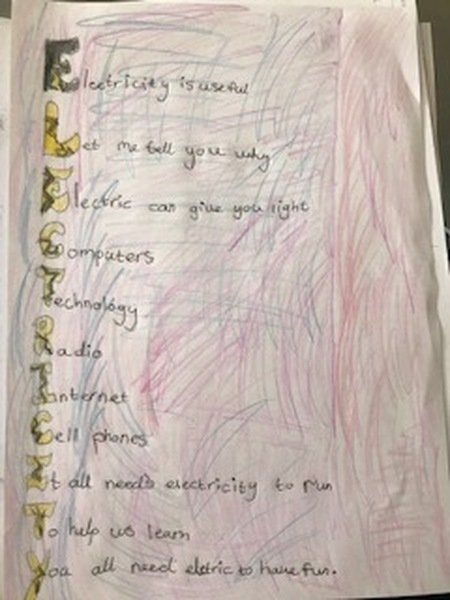 Electricity is useful
Let me tell you why
Electric can give you light
Computers
Technology
Radio
Internet
Cell phones
It all need's electricity to run
To help us learn
You all need eletric to have fun.